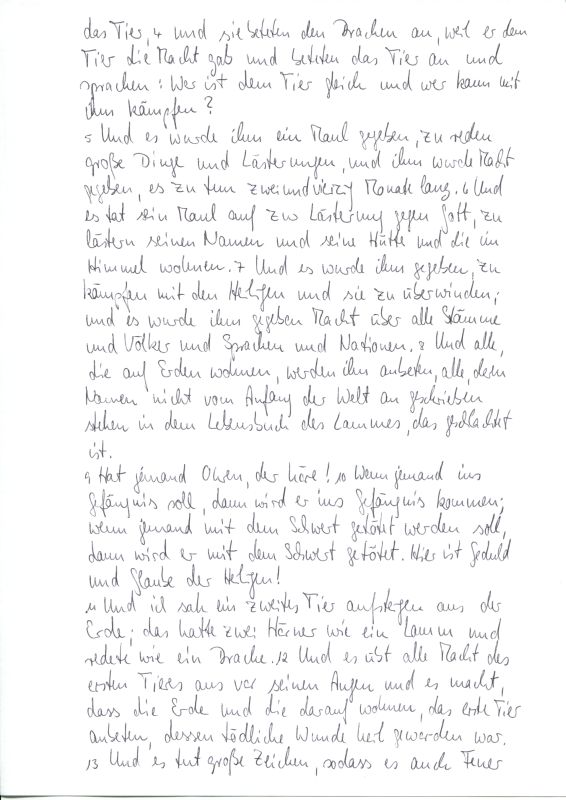 das Tier, 4 und sie beteten den Drachen an, weil er dem
Tier die Macht gab und beteten das Tier an und
sprachen: Wer ist dem Tier gleich und wer kann mit
ihm kämpfen?
5 Und es wurde ihm ein Maul gegeben, zu reden
große Dinge und Lästerungen, und ihm wurde Macht
gegeben, es zu tun zweiundvierzig Monate lang. 6 Und
es tat sein Maul auf zur Lästerung gegen Gott, zu
lästern seinen Namen und seine Hütte und die im
Himmel wohnen. 7 Und es wurde ihm gegeben, zu
kämpfen mit den Heiligen und sie zu überwinden;
und es wurde ihm gegeben Macht über alle Stämme
und Völker und Sprachen und Nationen. 8 Und alle,
die auf Erden wohnen, werden ihn anbeten, alle, deren
Namen nicht vom Anfang der Welt an geschrieben
stehen in dem Lebensbuch des Lammes, das geschlachtet
ist.
9 Hat jemand Ohren, der höre! 10 Wenn jemand ins
Gefängnis soll, dann wird er ins Gefängnis kommen;
wenn jemand mit dem Schwert getötet werden soll,
dann wird er mit dem Schwert getötet. Hier ist Geduld
und Glaube der Heiligen!
11 Und ich sah ein zweites Tier aufsteigen aus der
Erde; das hatte zwei Hörner wie ein Lamm und
redete wie ein Drache. 12 Und es übt alle Macht des
ersten Tieres aus vor seinen Augen und es macht,
dass die Erde und die darauf wohnen, das erste Tier
anbeten, dessen tödliche Wunde heil geworden war.
13 Und es tut große Zeichen, sodass es auch Feuer